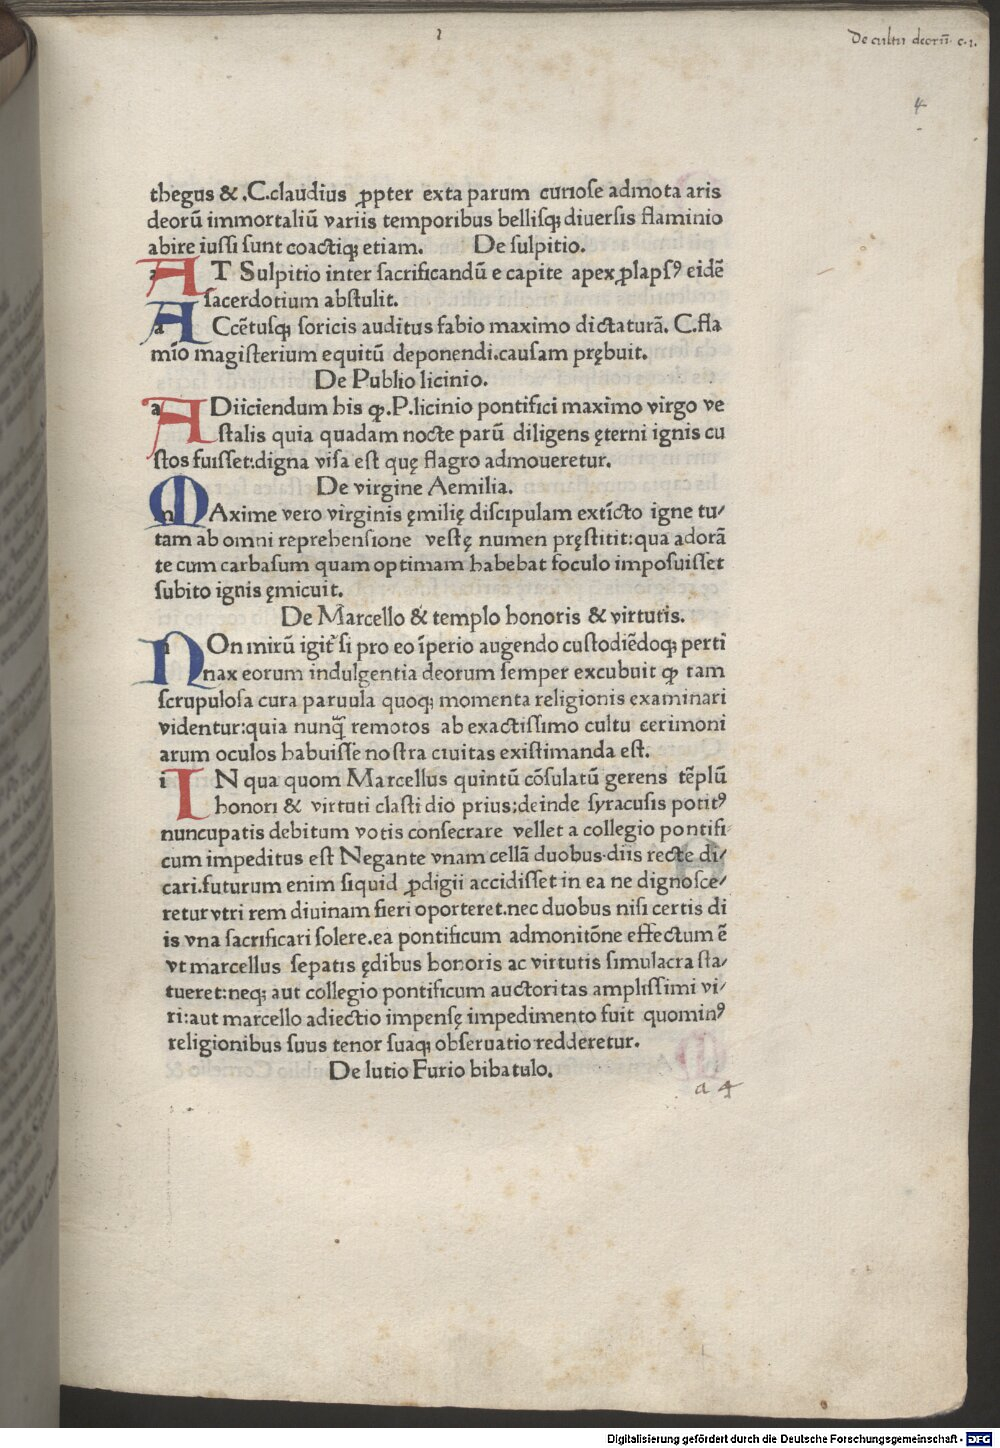 De cultu deorū c.1.
4
thegus & .C.claudius ꝓpter exta parum curiose admota aris
deorū immortaliū variis temporibus bellisqꝫ diuersis flaminio
abire iussi sunt coactiqꝫ etiam. De sulpitio.
AT Sulpitio inter sacrificandū e capite apex ꝓlapsꝰ eidē
sacerdotium abstulit.
ACcētusqꝫ soricis auditus fabio maximo dictaturā. C.fla
mīo magisterium equitū deponendi.causam prębuit.
De Publio licinio.
ADiiciendum his ꝙ.P.licinio pontifici maximo virgo ve
stalis quia quadam nocte parū diligens ęterni ignis cu
stos fuisset:digna visa est quę flagro admoueretur.
De virgine Aemilia.
MAxime vero virginis ęmilię discipulam extīcto igne tu/
tam ab omni reprehensione vestę numen pręstitit:qua adorā
te cum carbasum quam optimam habebat foculo imposuisset
subito ignis ęmicuit.
De Marcello & templo honoris & virtutis.
NOn mirū igit᷑ si pro eo īperio augendo custodiēdoqꝫ perti
nax eorum indulgentia deorum semper excubuit ꝙ tam
scrupulosa cura paruula quoqꝫ momenta religionis examinari
videntur:quia nunq̄ remotos ab exactissimo cultu cerimoni
arum oculos habuisse nostra ciuitas existimanda est.
IN qua quom Marcellus quintū cōsulatū gerens tēplū
honori & virtuti clastidio prius;deinde syracusis potitꝰ
nuncupatis debitum votis consecrare vellet a collegio pontifi
cum impeditus est Negante vnam cellā duobus diis recte di/
cari.futurum enim siquid ꝓdigii accidisset in ea ne dignosce/
retur vtri rem diuinam fieri oporteret.nec duobus nisi certis di
is vna sacrificari solere.ea pontificum admonitōne effectum ē
vt marcellus seꝑatis ędibus honoris ac virtutis simulacra sta/
tueret:neqꝫ aut collegio pontificum auctoritas amplissimi vi/
ri:aut marcello adiectio impensę impedimento fuit quominꝰ
religionibus suus tenor suaqꝫ obseruatio redderetur.
De lutio Furio bibatulo.
a 4
Digitalisierung gefördert durch die Deutsche Forschungsgemeinschaft - DFG